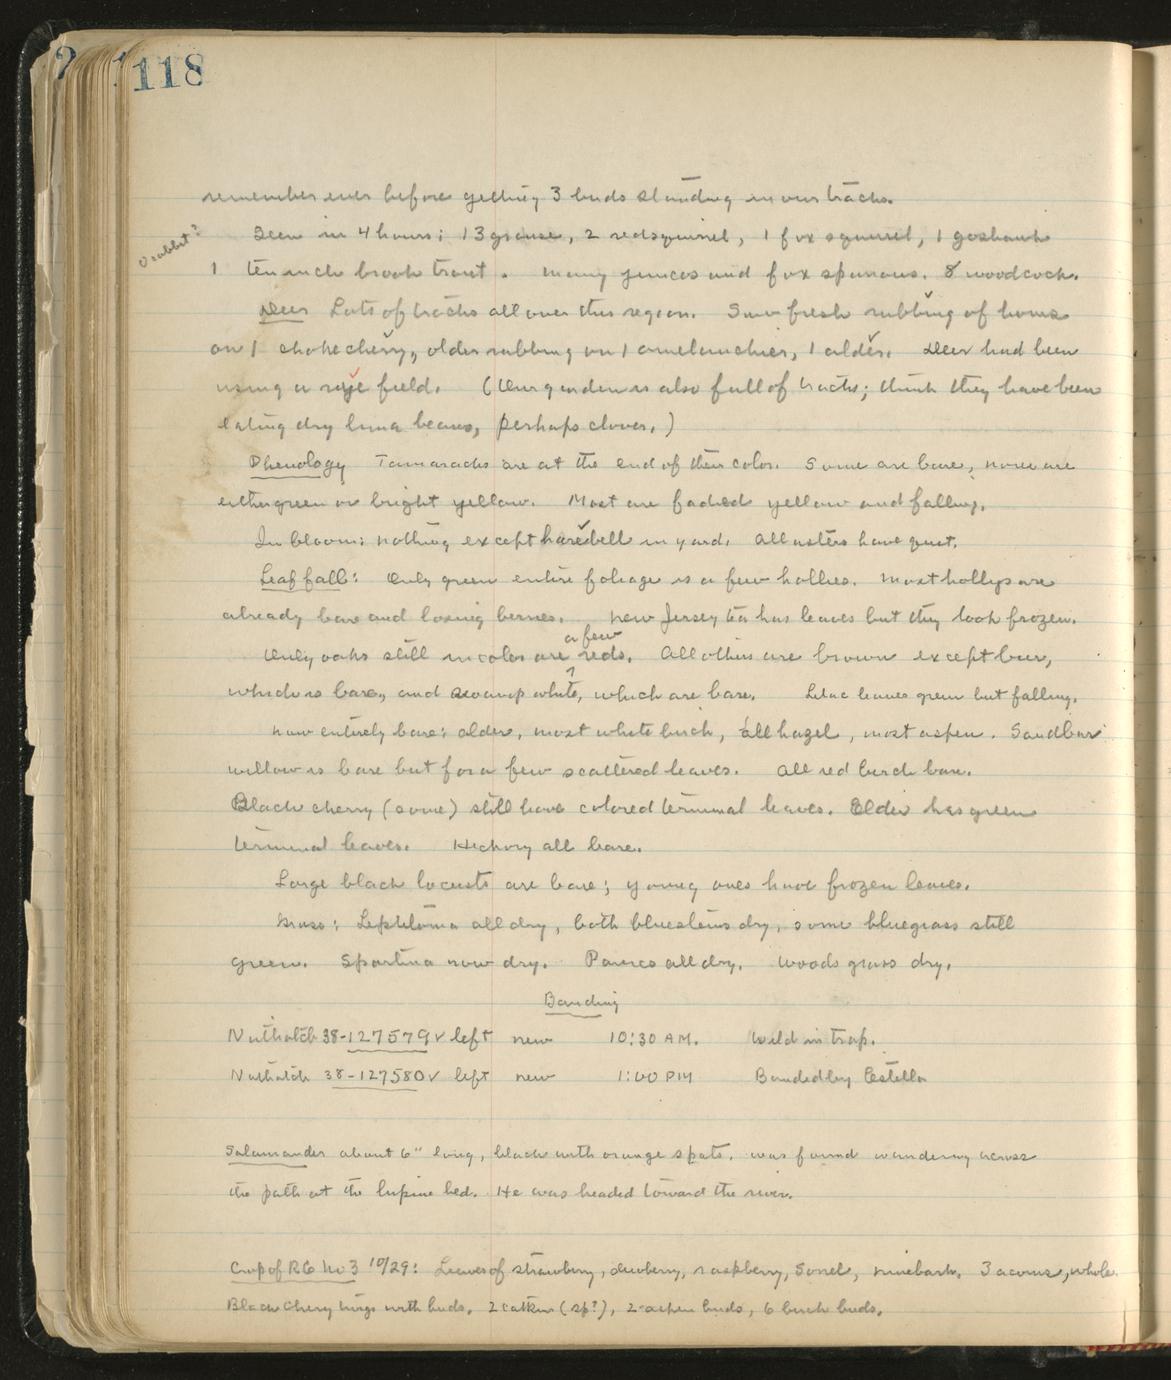 118
remember ever before getting 3 birds standing in our tracks.
0 rabbit?
Seen in 4 hours: 13 grouse, 2 redsquirrel, 1 fox squirrel, 1 goshawk
1 ten inch brook trout. Many juncos and fox sparrows. 8 woodcock.
Deer Lots of tracks all over this region. Saw fresh rubbing of horns
on 1 chokecherry, older rubbing on 1 amelanchier, 1 alder. Deer had been
using a rye field. (Our garden is also full of tracks; think they have been
eating dry lima beans, perhaps clover.)
Phenology Tamaracks are at the end of their color. Some are bare, none are
either green or bright yellow. Most are faded yellow and falling.
In bloom: nothing except harebell in yard. All asters have quit.
Leaf fall: Only green entire foliage is a few hollies. Most hollys are
already bare and losing berries. New Jersey tea has leaves but they look frozen.
a few
Only oaks still in color are reds. All others are brown except bur,
which is bare, and swamp white, which are bare. Lilac leaves green but falling.
Now entirely bare: alder, most white birch, all hazel, most aspen. Sandbar
willow is bare but for a few scattered leaves. All red birch bare.
Black cherry (some) still have colored terminal leaves. Elder has green
terminal leaves. Hickory all bare.
Large black locusts are bare; young ones have frozen leaves.
Grass: Leptiloma all dry, both bluestems dry, some bluegrass still
green. Spartina now dry. Panics all dry. Woods grass dry.
Banding
Nuthatch 38-127579 ✓ left new 10:30 AM. Wild in trap.
Nuthatch 38-127580 ✓ left new 1:00 PM Banded by Estella
Salamander about 6" long, black with orange spots, was found wandering across
the path at the lupine bed. He was headed toward the river.
Crop of RG No 3 10/29: Leaves of strawberry, dewberry, raspberry, sorrel, ninebark. 3 acorns, whole.
Black cherry twigs with buds. 2 catkins (sp?), 2 aspen buds, 6 birch buds.